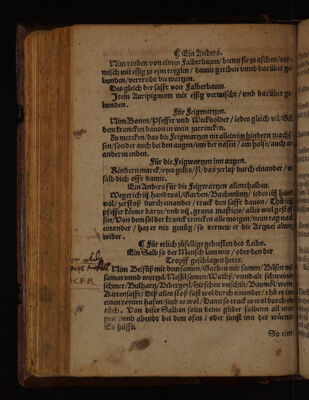 ¶ Ein Anders.
Nim rinden von einem Falberbaum / brenn sie zu aschen / ver-
misch mit essig zu eym teyglin / damit geriben vnnd darüber ge-
bunden / vertreibt die wartzen.
Des gleich der safft von Falberbaum.
Item Auripigment mit essig vermischt / vnd darüber ge-
bunden.
Für Feigwartzen.
Nim Bonen / Pfeffer vnd Weckholder / jedes gleich vil /
dem krancken davon in wein zutrincken.
Zu mercken / das die Feigwartzen nit allein im hindern wach-
sen / sonder auch bei den augen / inn der nasen / am halß / auch an
anderen enden.
Für die Feigwartzen inn augen.
Rindern marck / eyes gelbs / öl / das zerlaß durch einander /
selb dich offt damit.
Ein Anders für die Feigwartzen allenthalben.
Wegerich iij handvol / Garben / Bachmüntz / jedes iij hand
vol / zerstoß durch einander / truck den safft davon / Thů
pfeffer körner darzu / vnd grana masticis / alles wol gestos-
sen / Von dem sol der kranck trincken alle morgen / neun tag nach
einander / hat er nit genůg / so vernew er die Artznei
¶ Für etlich zůfellige gebresten des Leibs.
Ein Salb so der Mensch lam wer / oder den der
Tropff geschlagen hette.
Nim Beifůß mit dem samen / Garben mit samen / Bilsen mit
samen vnnd wurtzel /
schmer /
Kittensafft / Diß alles stoß fast wol durch einander / thů es inn
einen reynen hafen / seud es wol / Dann so truck es wol durch ein
tůch. Von diser Salben soltu deine glider salben all mor-
gen vnnd abends bei dem ofen / oder sunst inn der wärme
Es hilfft.
So eim